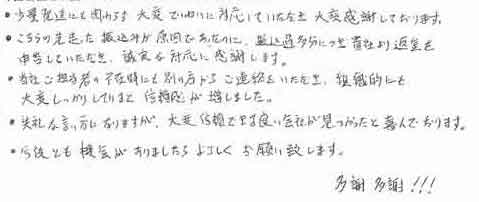 ・少量発送にも関わらず 大変ていねいに対応していただき 大変感謝しております。
・こちらの先走った振込みが原因であったのに、振込過多分につき貴社より返金を
申出していただき、誠実な対応に感謝します。
・当社ご担当者の不在時にも別の方から ご連絡をいただき、組織的にも
大変しっかりしていると 信頼感が増しました。
・失礼な言い方になりますが、大変信頼できる良い会社が見つかったと喜んでおります。
・今後とも 機会がありましたら よろしく お願い致します。
多謝 多謝!!!